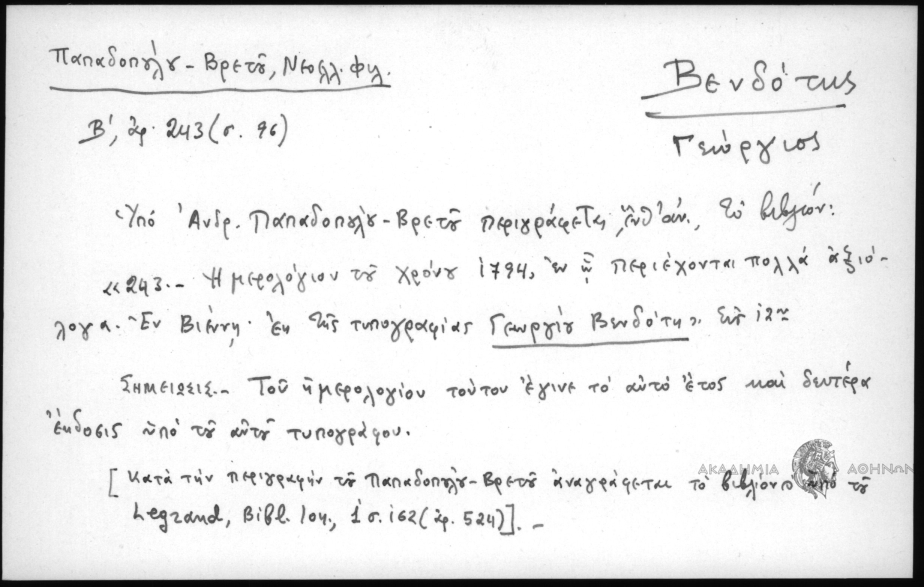 Παπαδοπούλου-Βρετοῦ, Νεοελλ. Φιλ.
Βενδότης
Β', ἀρ. 243 (σ. 96)
Γεώργιος
Ὑπό Ἀνδρ. Παπαδοπούλου-Βρετοῦ περιγράφεται, ἔνθ' ἀν., τό βιβλίον:
«243.- Ἡμερολόγιον τοῦ χρόνου 1794, ἐν ᾧ περιέχονται πολλά ἀξιό-
λογα. Ἐν Βιέννῃ, ἐκ τῆς τυπογραφίας Γεωργίου Βενδότη». Εἰς 12ον
ΣΗΜΕΙΩΣΙΣ.- Τοῦ ἡμερολογίου τούτου ἔγινε τό αὐτό ἔτος καί δευτέρα
ἔκδοσις ὑπό τοῦ αὐτοῦ τυπογράφου.
ΑΚΑΔΗΜΙΑ ΑΘΗΝΩΝ
[Κατά τήν περιγραφήν τοῦ Παπαδοπούλου-Βρετοῦ ἀναγράφεται τό βιβλίον ὑπό τοῦ
Legrand, Bibl. Ion., 1 σ. 162 (ἀρ. 524)].-